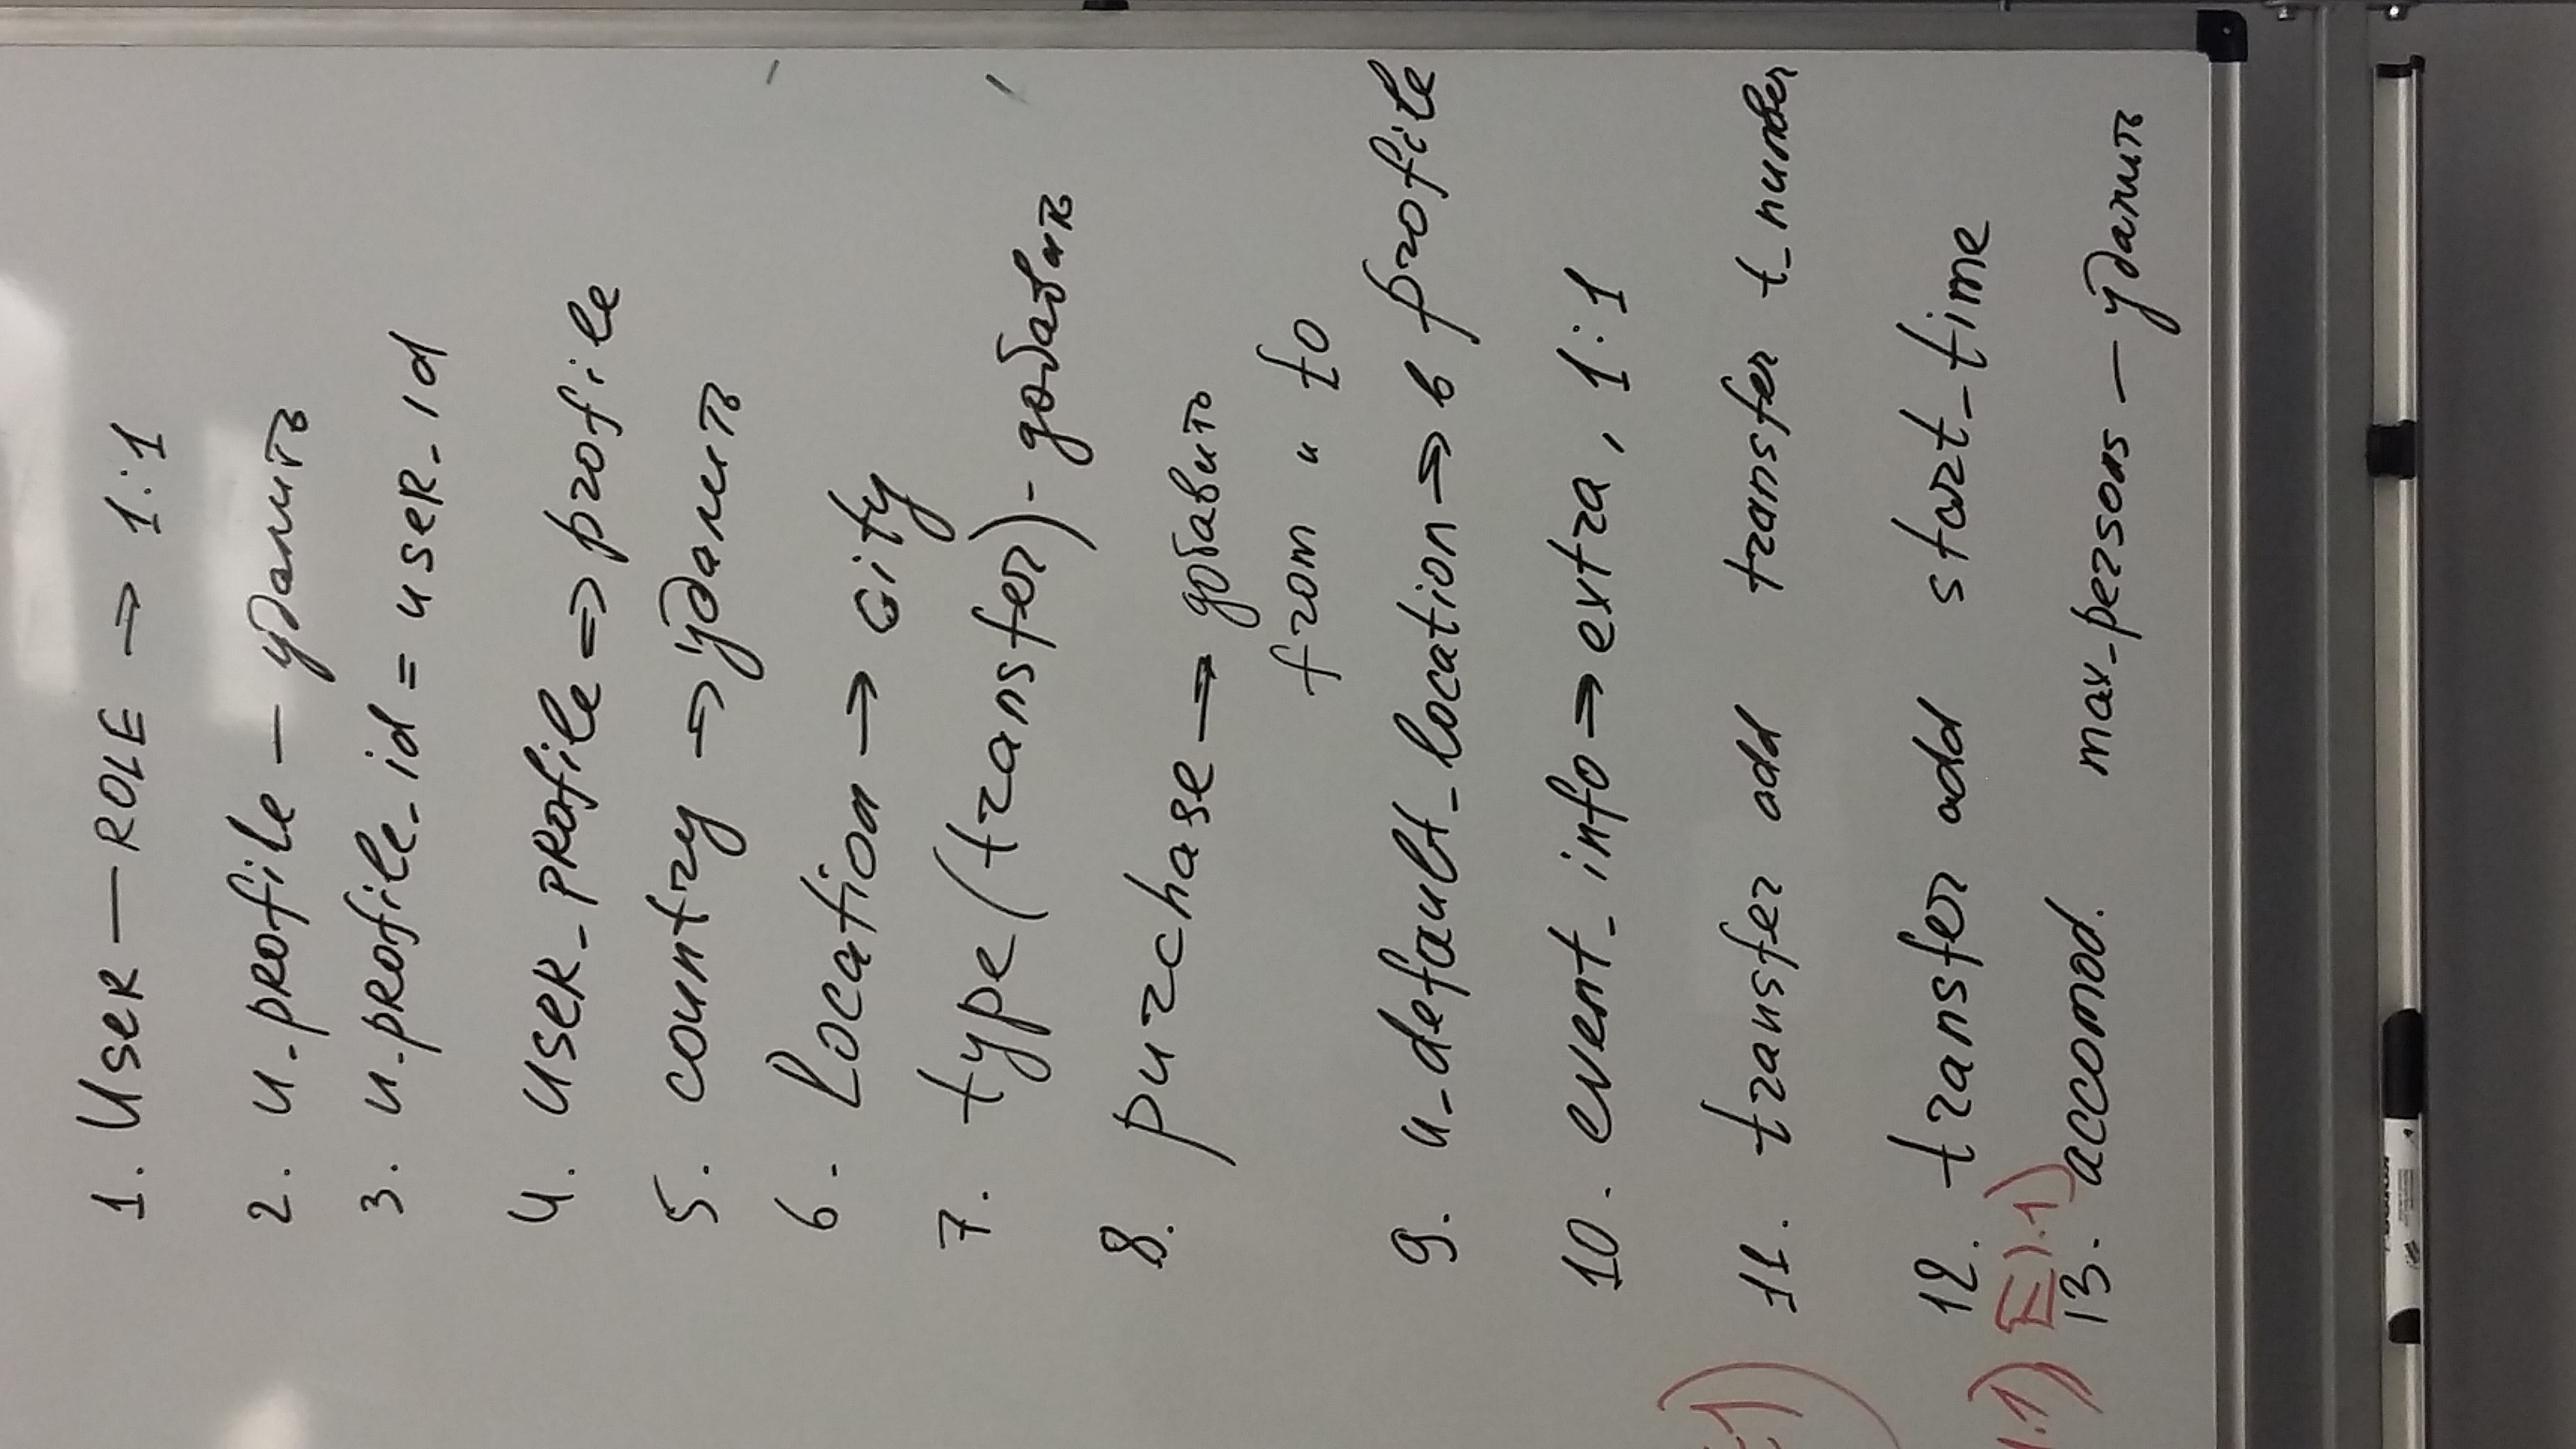 1. User — ROLE ⇒ 1:1
2. u_profile — удалить
3. u_profile_id = user_id
4. user_profile ⇒ profile
5. country ⇒ удалить
6. Location → city
7. type (transfer) - добавить
8. purchase → добавить
from и to
9. u_default_location ⇒ в profile
10. event_info ⇒ extra, 1:1
11. transfer add transfer t_number
12. transfer add start_time
E1.1)
13. accomod. max_persons — удалить